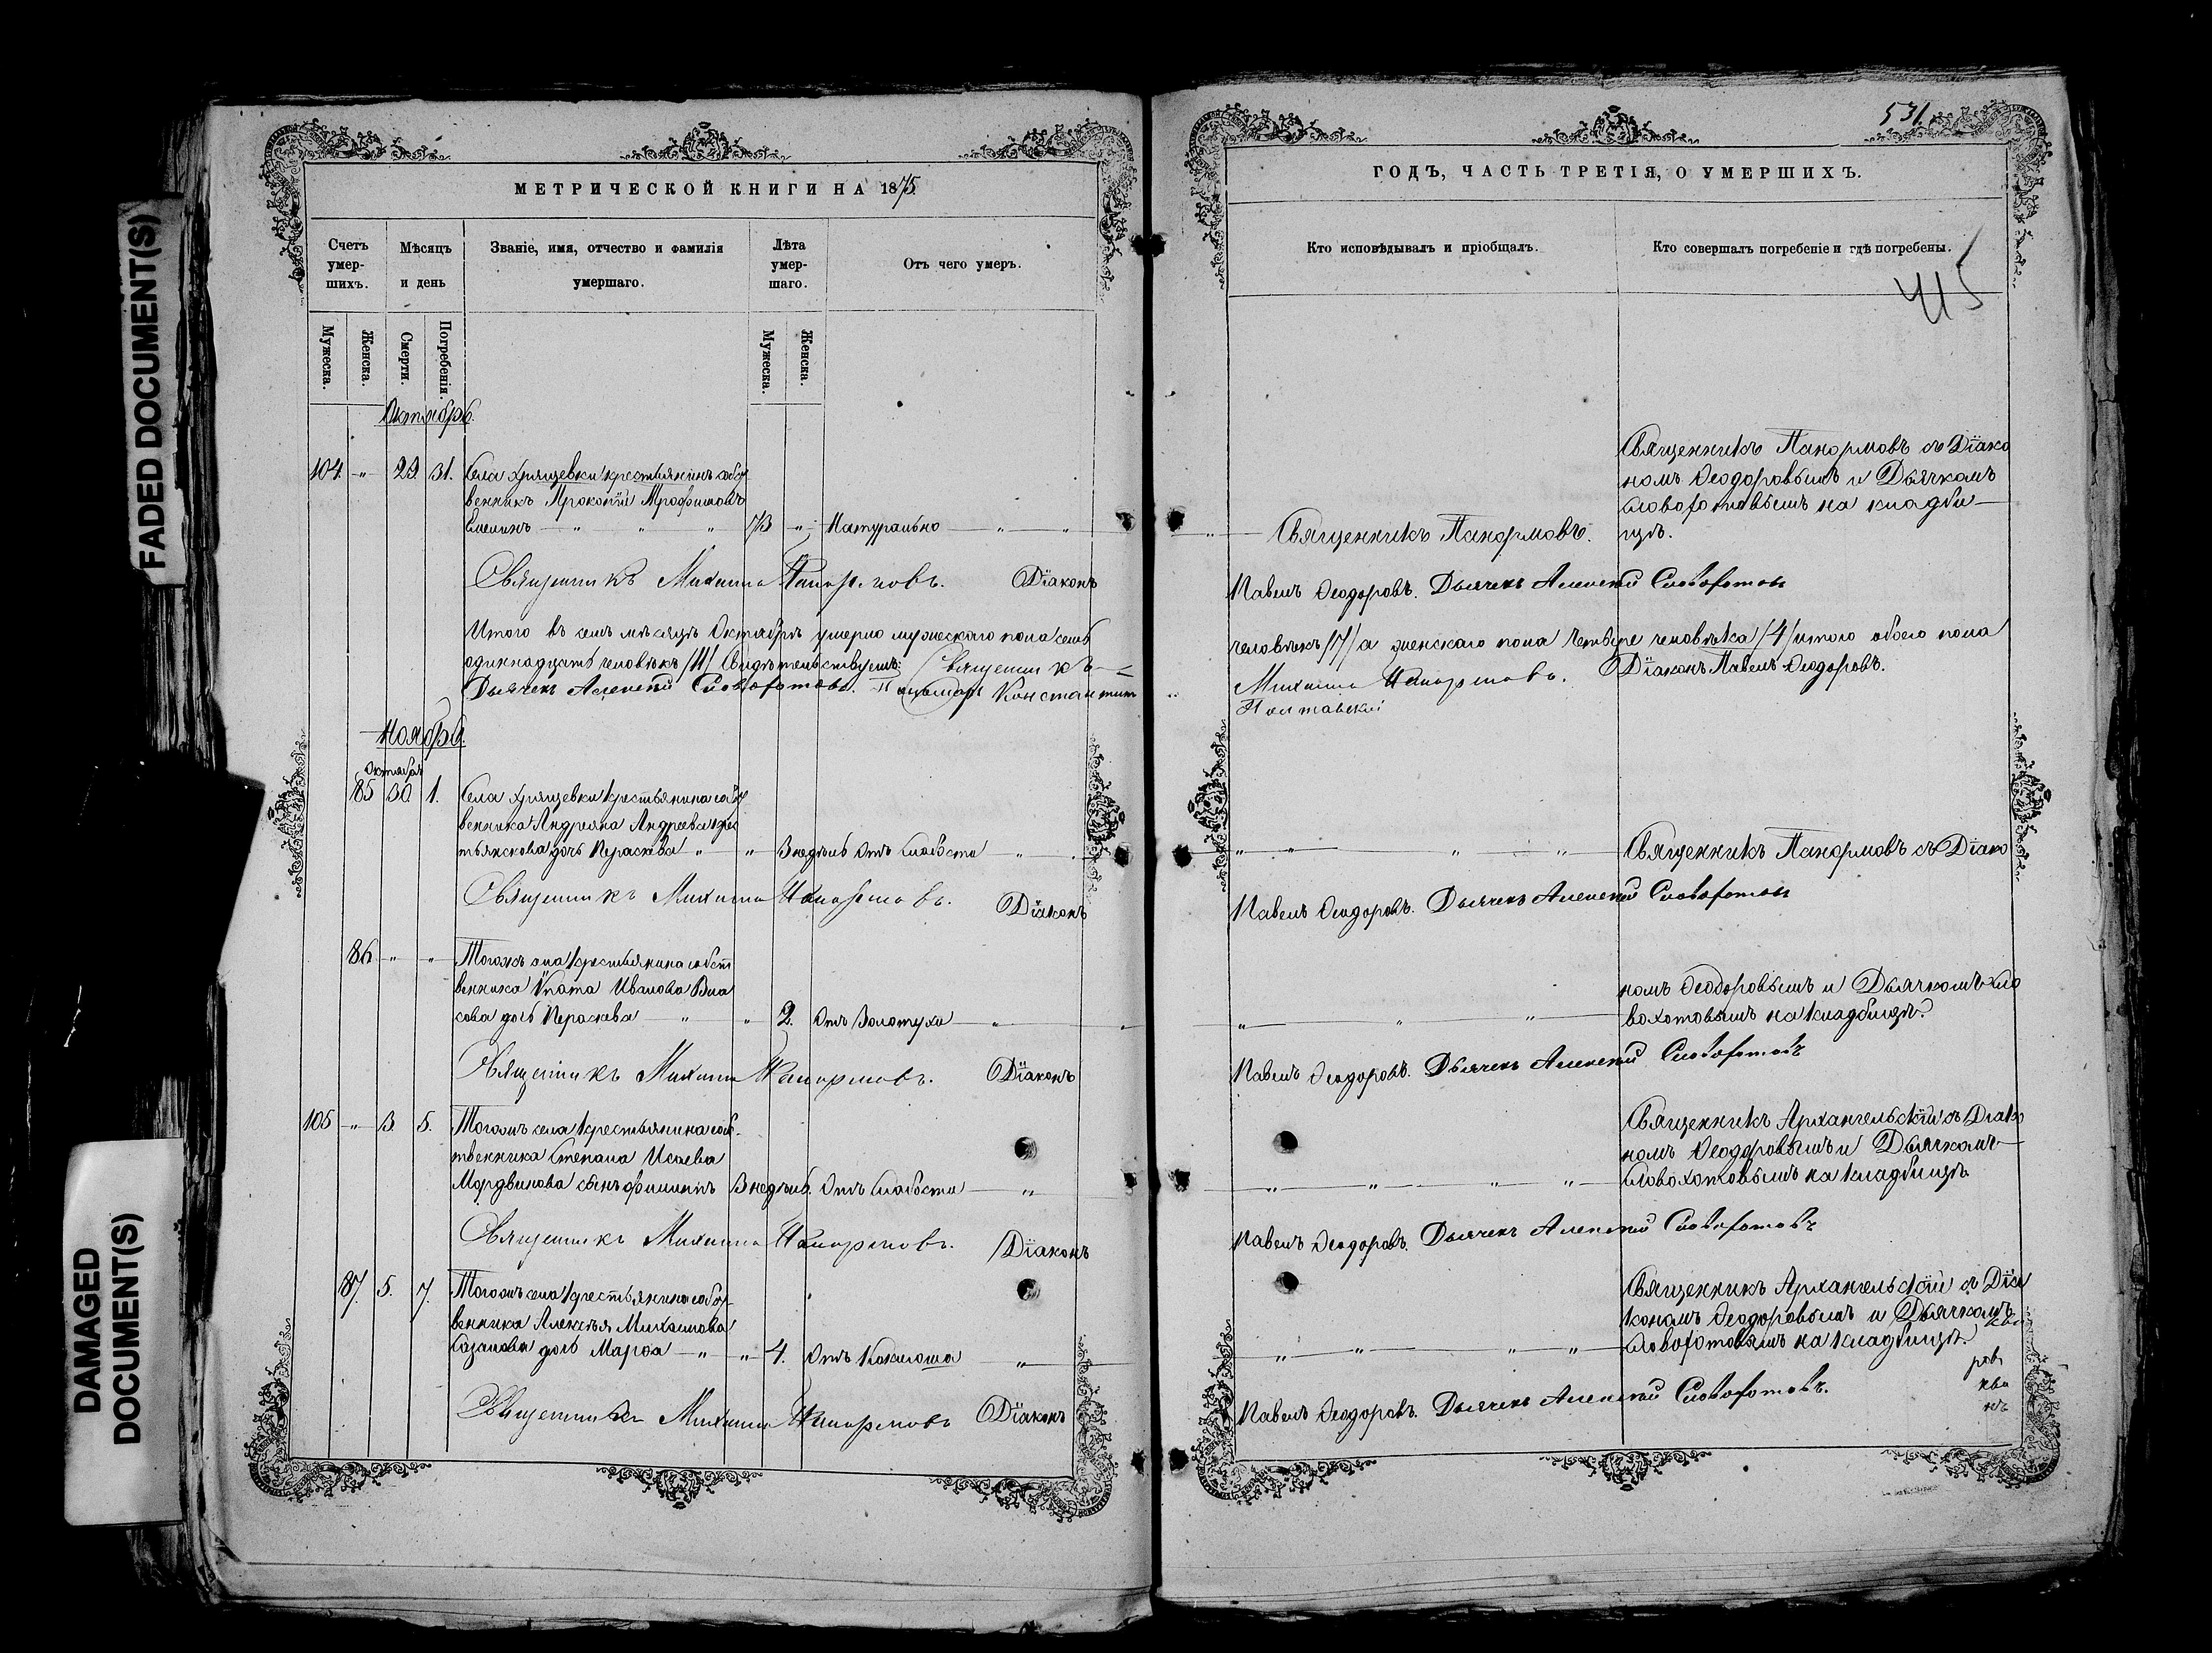 FADED DOCUMENT(S)
DAMAGED
DOCUMENT(S)
МЕТРИЧЕСКОЙ КНИГИ НА 1875
Счетъ умер-шихъ.
Мѣсяцъ и день
Званіе, имя, отчество и фамилія умершаго.
Лѣта умер-шаго.
Отъ чего умеръ.
Мужеска.
Женска.
Смерти.
Погребенія.
Мужеска.
Женска.
Октябрь.
104 " 29. 31. Села Хрящевки крестьянинъ собст
венникъ Прокопій Трофимовъ
" " 73 " Натурально " "
Священникъ Михаилъ Панормовъ. Діаконъ
Итого въ семъ мѣсяцѣ Октябрѣ умерло мужескаго пола семь
одиннадцать человѣкъ /11/ Свидѣтельствуемъ: Священникъ
Дьячекъ Алексѣй Словохотовъ. Пономарь Константинъ
Ноябрь.
Октября
85 30. 1. Села Хрящевки крестьянина собст
венника Андреяна Андреева
дочь Параскева " " 3 недѣль Отъ слабости "
Священникъ Михаилъ Панормовъ. Діаконъ
86 " " Тогожъ села крестьянина собст
венника Ипата Иванова Вла
сова дочь Параскева " " 2. Отъ Золотухи " "
Священникъ Михаилъ Панормовъ. Діаконъ
105 " 3. 5. Тогожъ села крестьянина собс
твенника Степана Исаева
Мордвинова сынъ Филиппъ 3 недѣль. Отъ слабости "
Священникъ Михаилъ Панормовъ. Діаконъ
87. 5. 7. Тогожъ села крестьянина собст
венника Алексѣя Михаилова
Казакова дочь Марѳа " " 4. Отъ Коклюша "
Священникъ Михаилъ Панормовъ Діаконъ
531.
ГОДЪ, ЧАСТЬ ТРЕТІЯ, О УМЕРШИХЪ.
Кто исповѣдывалъ и пріобщалъ.
Кто совершалъ погребеніе и гдѣ погребены.
415
Священникъ Панормовъ съ Діако
номъ Ѳеодоровымъ и Дьячкомъ
Словохотовымъ на кладби
" Священникъ Панормовъ. щѣ.
Павелъ Ѳеодоровъ. Дьячекъ Алексѣй Словохотовъ
человѣкъ /7/ а женскаго пола четыре человѣка /4/ итого обоего пола
Михаилъ Панормовъ. Діаконъ Павелъ Ѳеодоровъ.
Полтавскій
" " " " Священникъ Панормовъ съ Діако
Павелъ Ѳеодоровъ. Дьячекъ Алексѣй Словохотовъ
номъ Ѳеодоровымъ и Дьячкомъ Сло
" " " вохотовымъ на кладбищѣ.
Павелъ Ѳеодоровъ. Дьячекъ Алексѣй Словохотовъ
Священникъ Архангельскій съ Діако
номъ Ѳеодоровымъ и Дьячкомъ
" " " " Словохотовымъ на кладбищѣ
Павелъ Ѳеодоровъ. Дьячекъ Алексѣй Словохотовъ
Священникъ Архангельскій съ Діа
кономъ Ѳеодоровымъ и Дьячкомъ
" " " " Словохотовымъ на кладбищѣ.
Павелъ Ѳеодоровъ. Дьячекъ Алексѣй Словохотовъ.